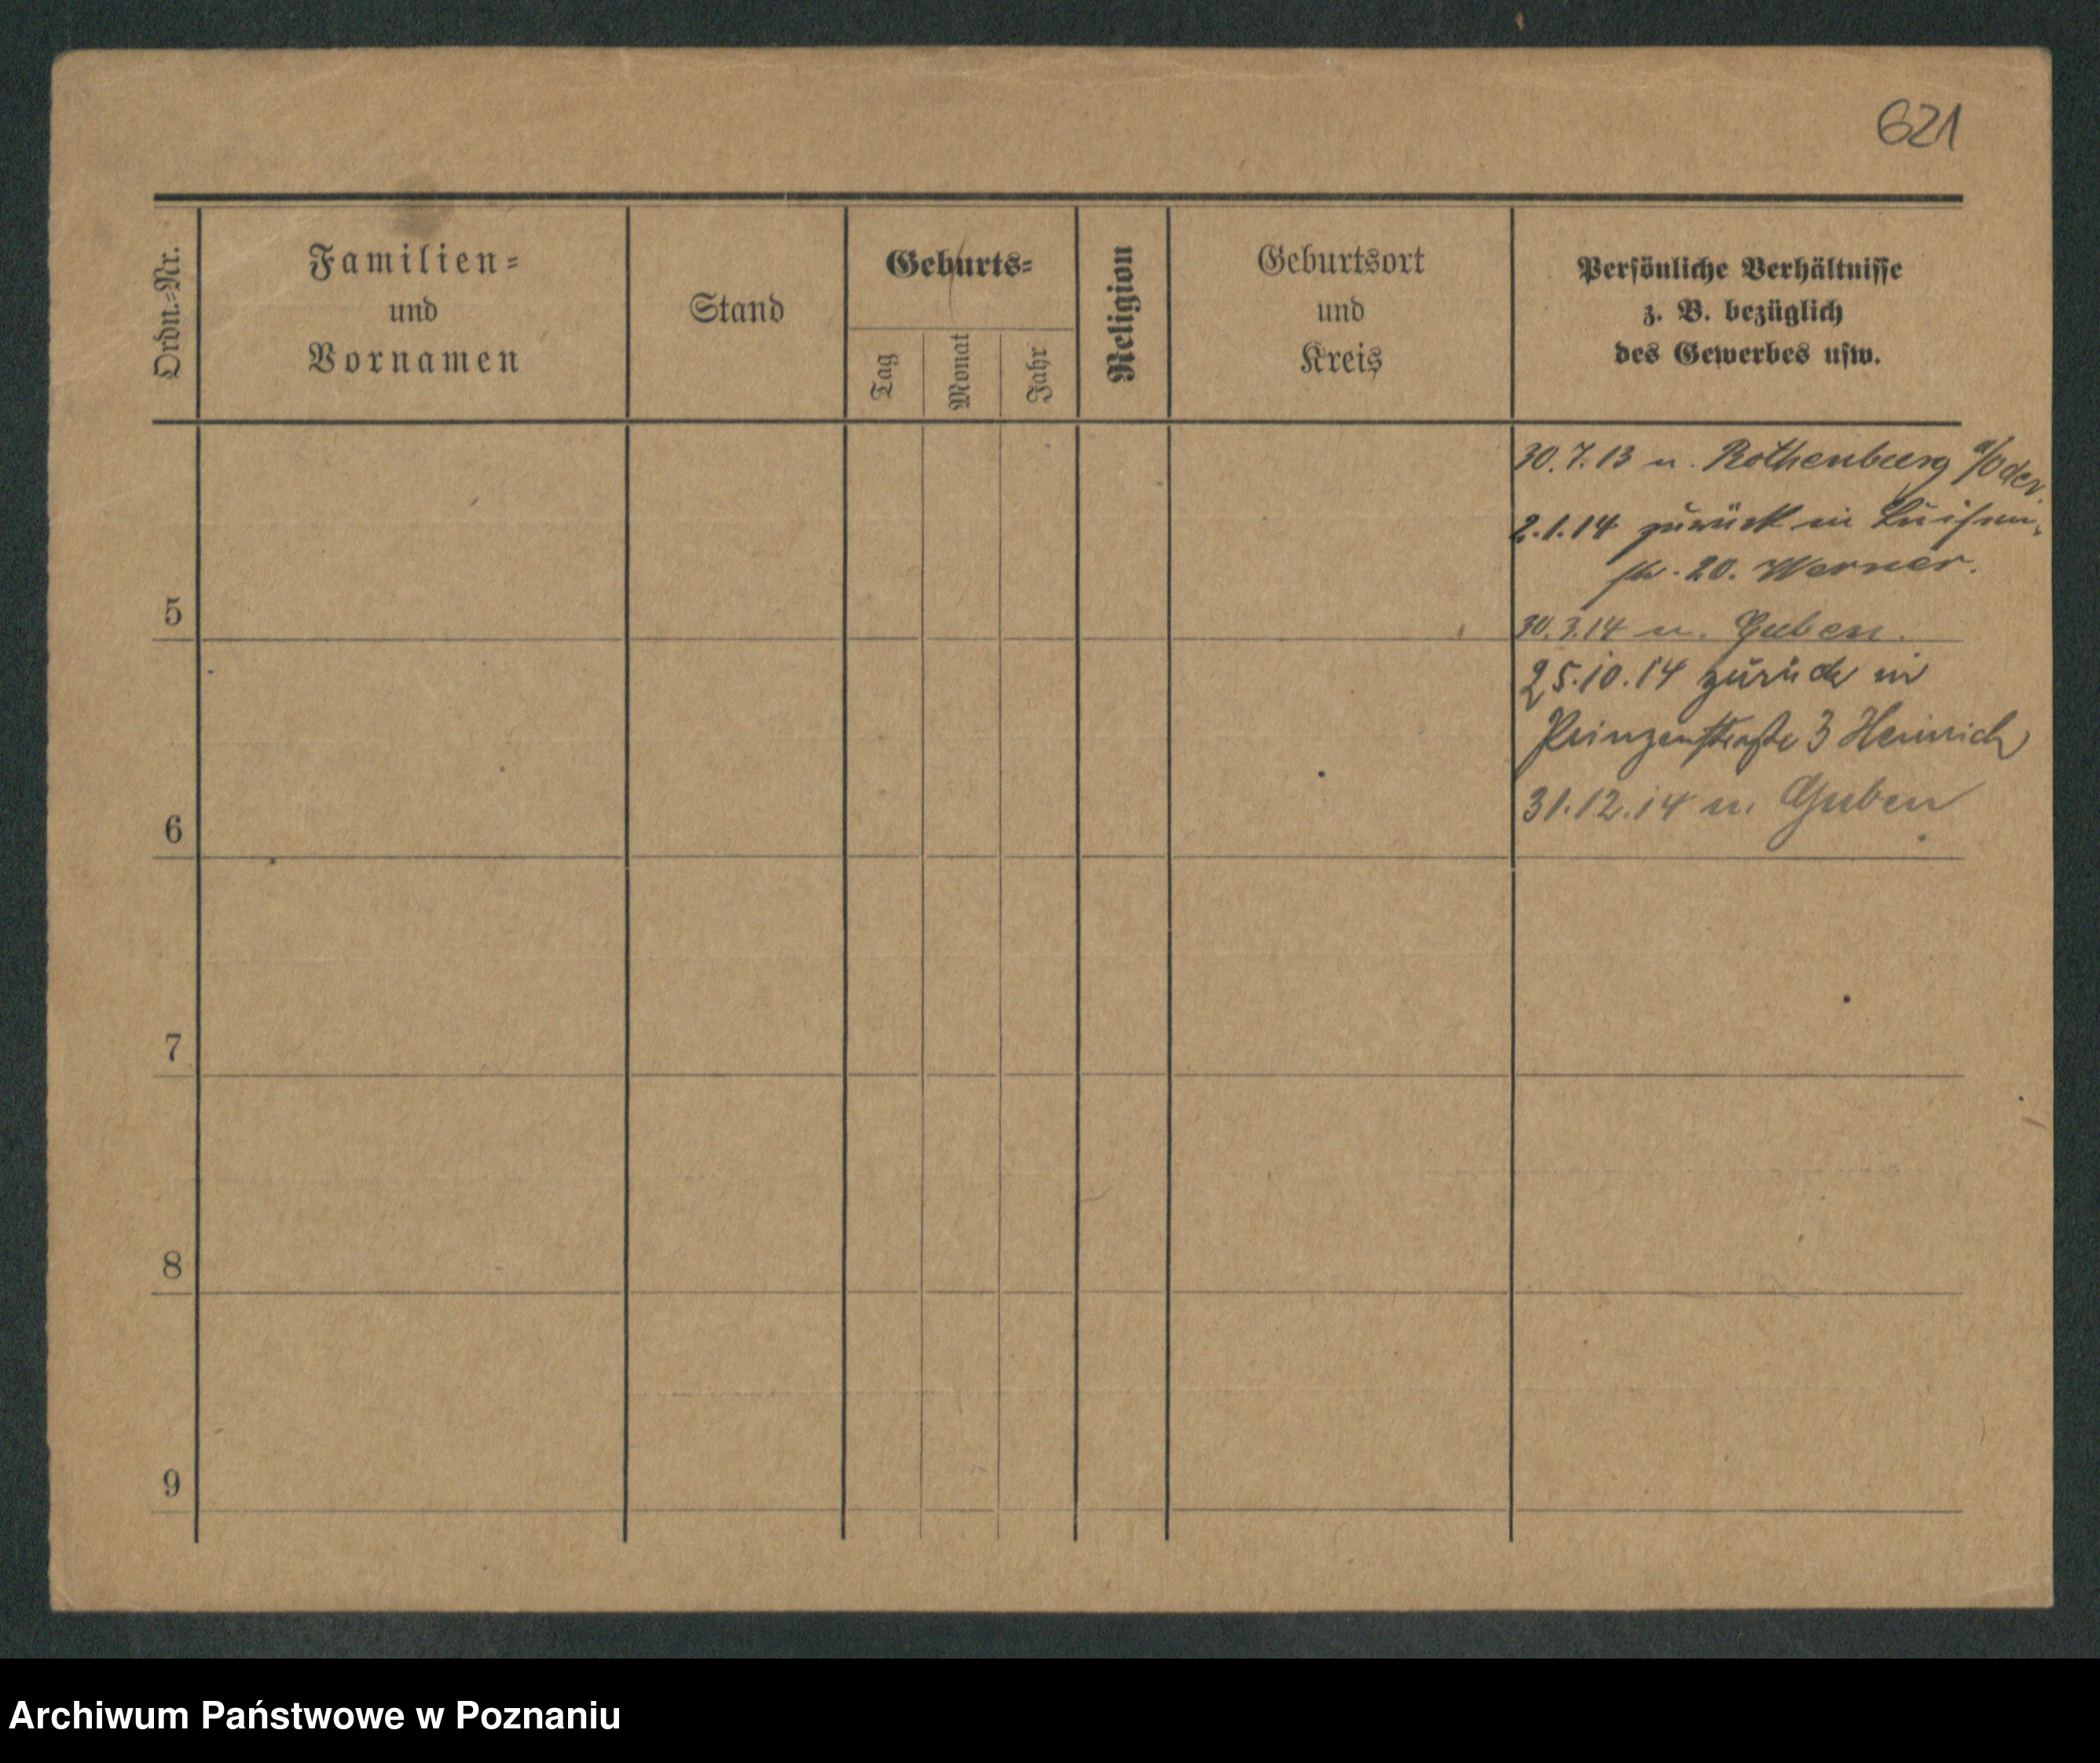 621
Ordn.-Nr.
Familien-
und
Vornamen
Stand
Geburts-
Tag
Monat
Jahr
Religion
Geburtsort
und
Kreis
Persönliche Verhältnisse
z. B. bezüglich
des Gewerbes usw.
30.7.13 n. Rothenburg a/Oder.
2.1.14 zurück in Luisen-
str. 20. Werner.
5
30.3.14 n. Guben.
25.10.14 zurück in
Prinzenstraße 3 Heinrich
31.12.14 n. Guben
6
7
8
9
Archiwum Państwowe w Poznaniu